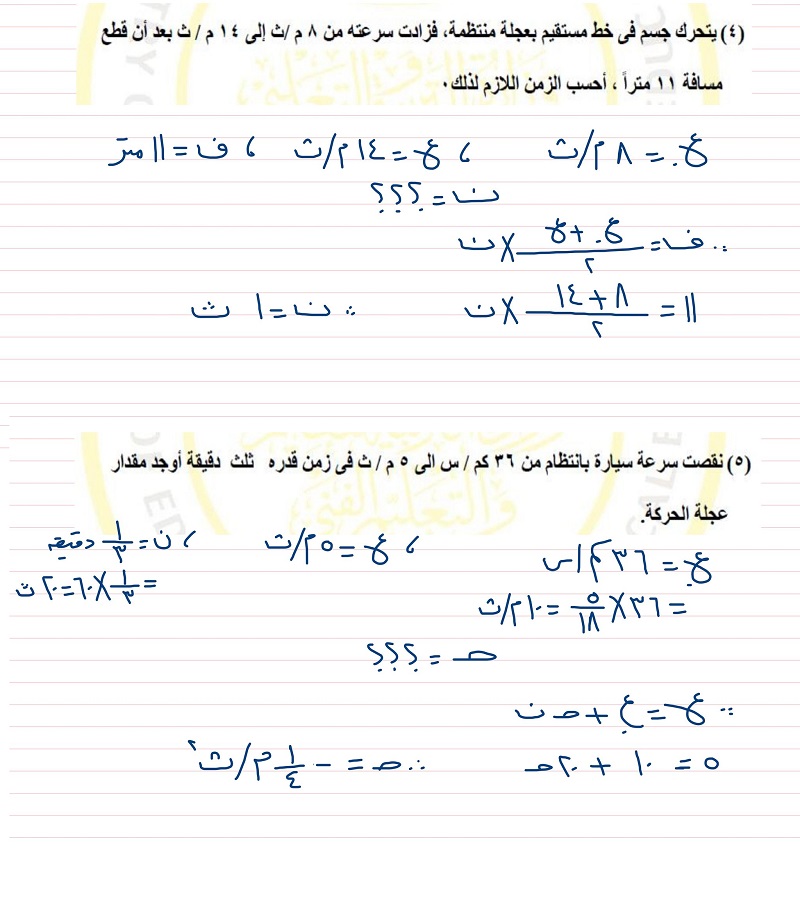 (٤) يتحرك جسم فى خط مستقيم بعجلة منتظمة، فزادت سرعته من ٨ م /ث إلى ١٤ م / ث بعد أن قطع
مسافة ١١ متراً ، أحسب الزمن اللازم لذلك٠
ع. = ٨ م/ث ، ع = ١٤ م/ث ، ف = ١١ متر
ن = ؟؟؟
∵ ف = (ع. + ع)/٢ × ن
١١ = (٨ + ١٤)/٢ × ن ∴ ن = ١ ث
(٥) نقصت سرعة سيارة بانتظام من ٣٦ كم / س الى ٥ م / ث فى زمن قدره ثلث دقيقة أوجد مقدار
عجلة الحركة.
ع. = ٣٦ كم/س ، ع = ٥ م/ث ، ن = ١/٣ دقيقة
= ٣٦ × ٥/١٨ = ١٠ م/ث = ١/٣ × ٦٠ = ٢٠ ث
حـ = ؟؟؟
∵ ع = ع. + حـ ن
٥ = ١٠ + ٢٠ حـ ∴ حـ = - ١/٤ م/ث٢